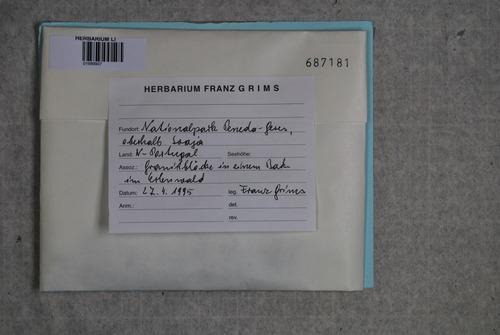 HERBARIUM LI
687181
HERBARIUM FRANZ GRIMS
Fundort: Nationalpark Peneda-Geres,
oberhalb Soajo
Land: N-Portugal Seehöhe:
Assoz.: Granitblöcke in einem Bach
im Erlenwald
Datum: 27.4.1995 leg. Franz Grims
Anm.: det.
rev.